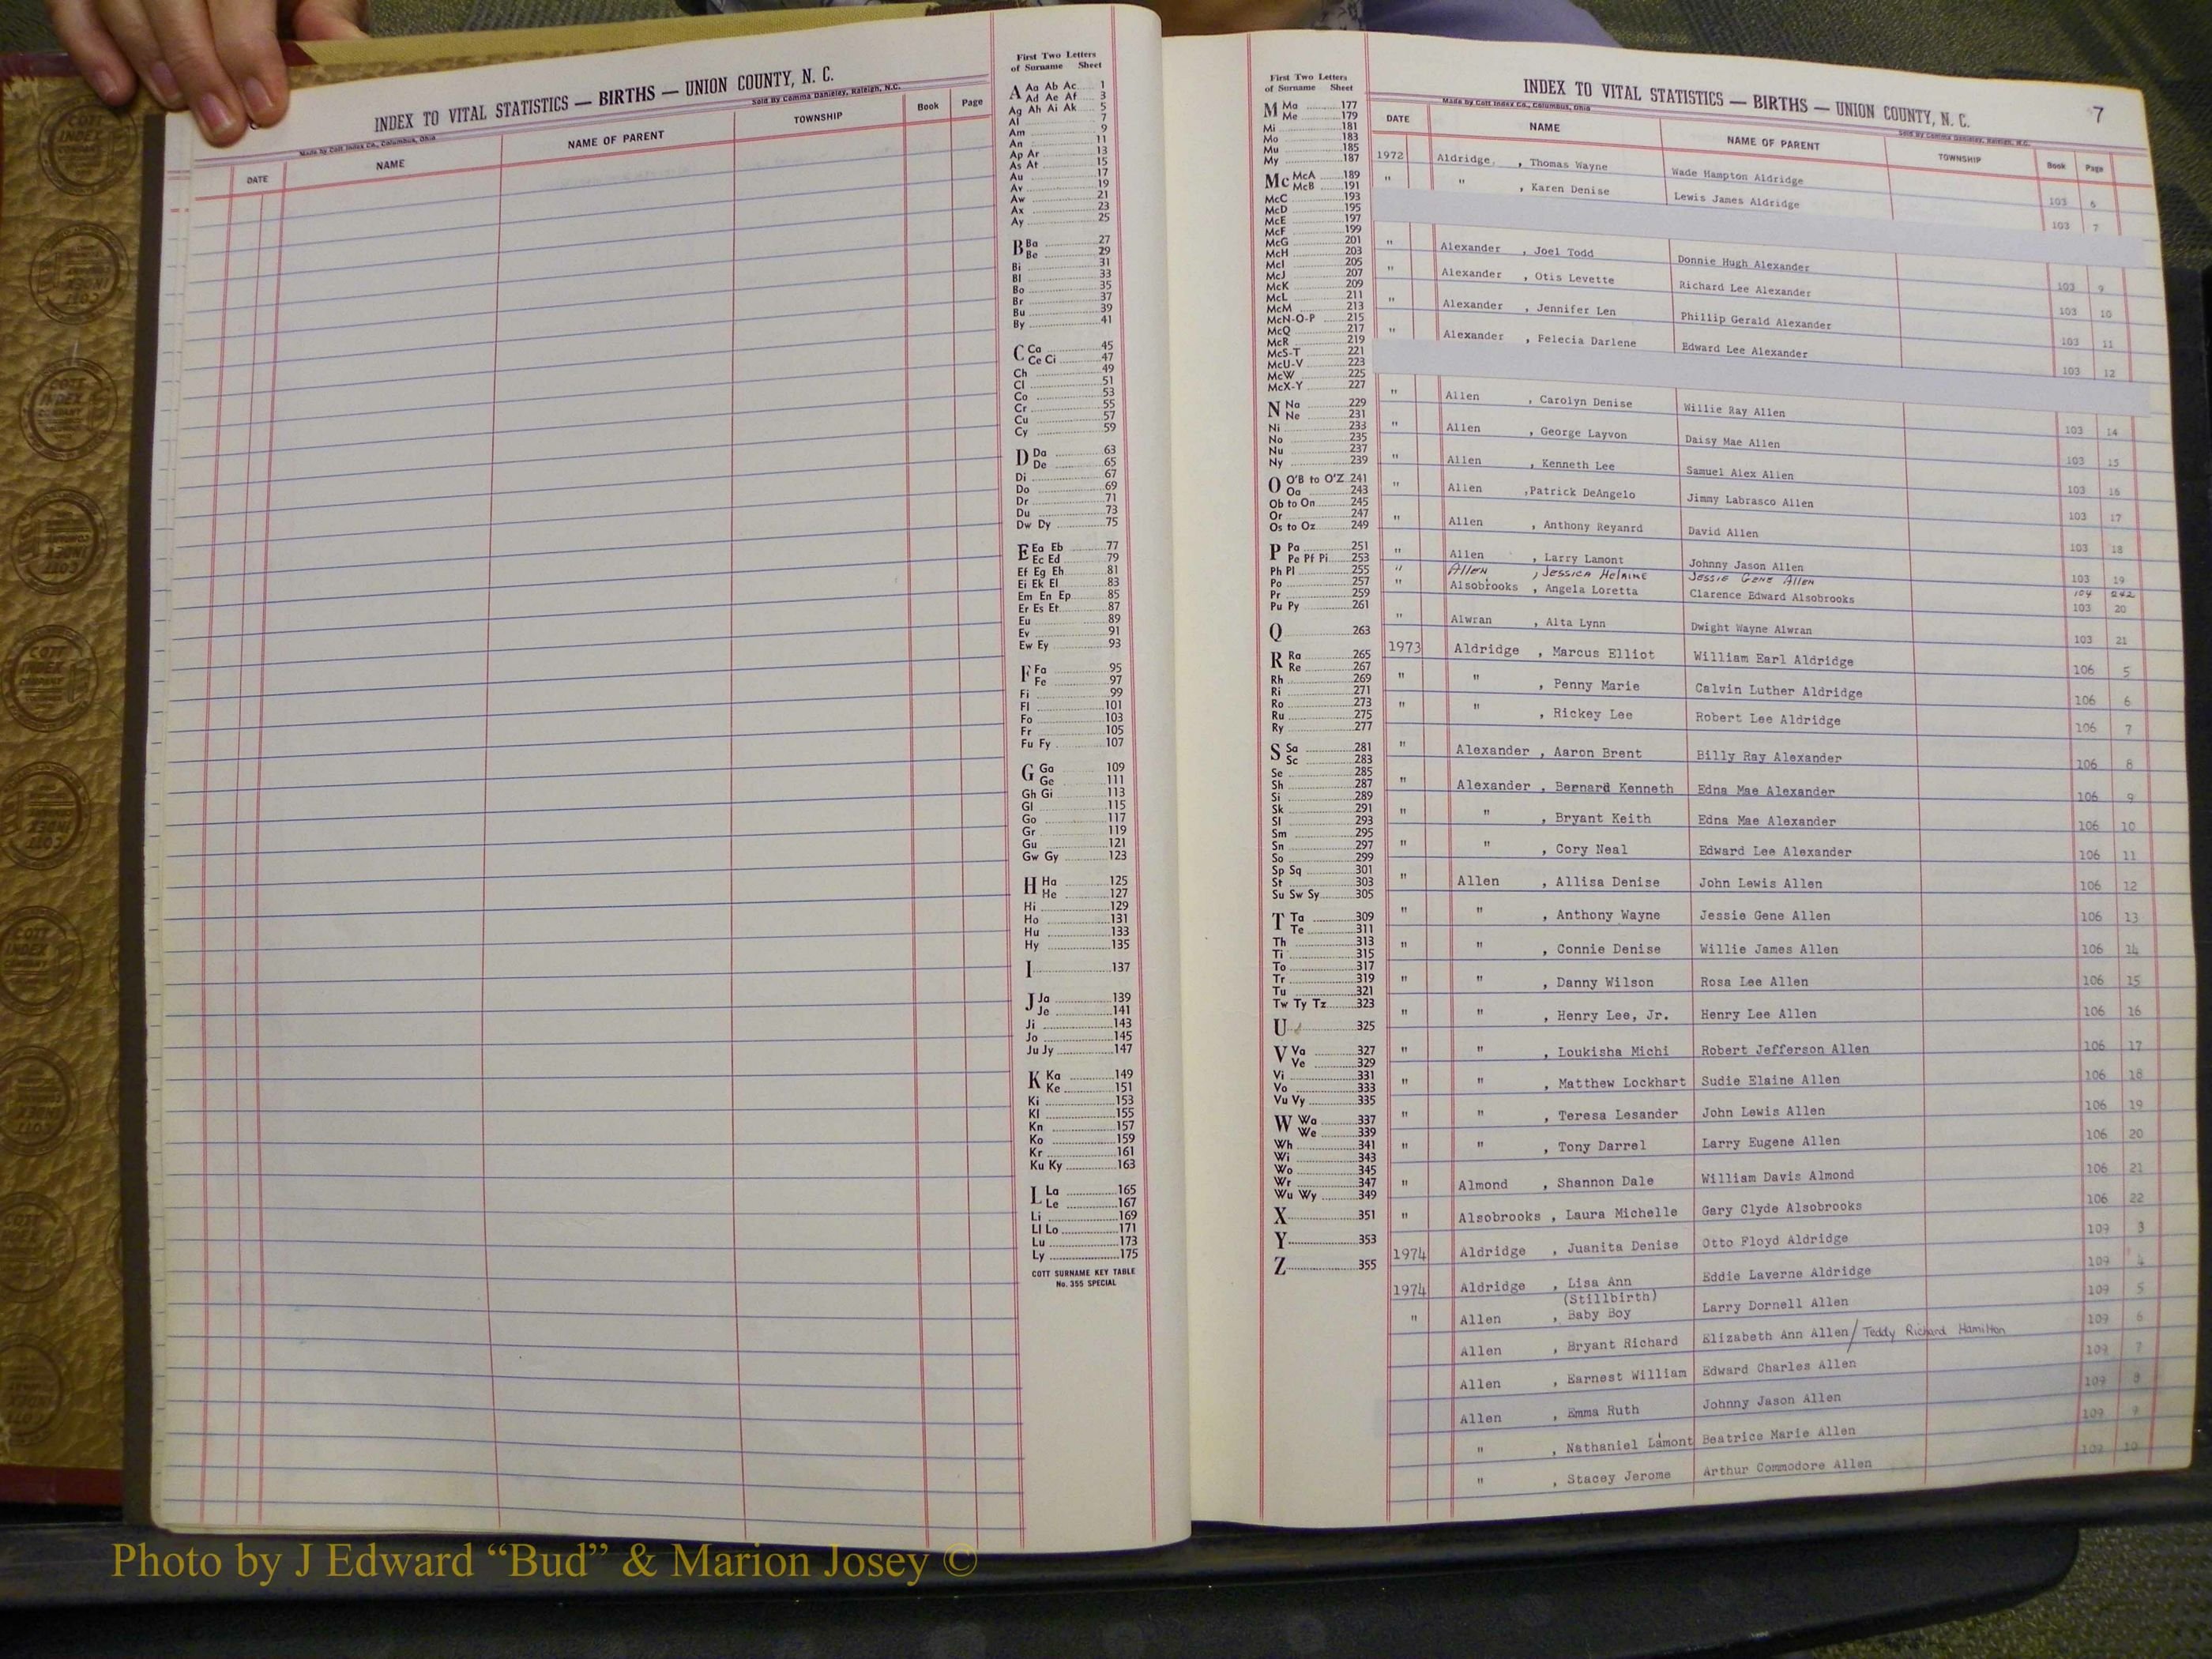 INDEX TO VITAL STATISTICS — BIRTHS — UNION COUNTY, N. C.
Made by Cott Index Co., Columbus, Ohio
Sold By Comma Danieley, Raleigh, N.C.
DATE NAME NAME OF PARENT TOWNSHIP Book Page
First Two Letters
of Surname Sheet
A Aa Ab Ac 1
Ad Ae Af 3
Ag Ah Ai Ak 5
Al 7
Am 9
An 11
Ap Ar 13
As At 15
Au 17
Av 19
Aw 21
Ax 23
Ay 25
B Ba 27
Be 29
Bi 31
Bl 33
Bo 35
Br 37
Bu 39
By 41
C Ca 45
Ce Ci 47
Ch 49
Cl 51
Co 53
Cr 55
Cu 57
Cy 59
D Da 63
De 65
Di 67
Do 69
Dr 71
Du 73
Dw Dy 75
E Ea Eb 77
Ec Ed 79
Ef Eg Eh 81
Ei Ek El 83
Em En Ep 85
Er Es Et 87
Eu 89
Ev 91
Ew Ey 93
F Fa 95
Fe 97
Fi 99
Fl 101
Fo 103
Fr 105
Fu Fy 107
G Ga 109
Ge 111
Gh Gi 113
Gl 115
Go 117
Gr 119
Gu 121
Gw Gy 123
H Ha 125
He 127
Hi 129
Ho 131
Hu 133
Hy 135
I 137
J Ja 139
Je 141
Ji 143
Jo 145
Ju Jy 147
K Ka 149
Ke 151
Ki 153
Kl 155
Kn 157
Ko 159
Kr 161
Ku Ky 163
L La 165
Le 167
Li 169
Ll Lo 171
Lu 173
Ly 175
COTT SURNAME KEY TABLE
No. 355 SPECIAL
First Two Letters
of Surname Sheet
M Ma 177
Me 179
Mi 181
Mo 183
Mu 185
My 187
Mc McA 189
McB 191
McC 193
McD 195
McE 197
McF 199
McG 201
McH 203
McI 205
McJ 207
McK 209
McL 211
McM 213
McN-O-P 215
McQ 217
McR 219
McS-T 221
McU-V 223
McW 225
McX-Y 227
N Na 229
Ne 231
Ni 233
No 235
Nu 237
Ny 239
O O'B to O'Z 241
Oa 243
Ob to On 245
Or 247
Os to Oz 249
P Pa 251
Pe Pf Pi 253
Ph Pl 255
Po 257
Pr 259
Pu Py 261
Q 263
R Ra 265
Re 267
Rh 269
Ri 271
Ro 273
Ru 275
Ry 277
S Sa 281
Sc 283
Se 285
Sh 287
Si 289
Sk 291
Sl 293
Sm 295
Sn 297
So 299
Sp Sq 301
St 303
Su Sw Sy 305
T Ta 309
Te 311
Th 313
Ti 315
To 317
Tr 319
Tu 321
Tw Ty Tz 323
U 325
V Va 327
Ve 329
Vi 331
Vo 333
Vu Vy 335
W Wa 337
We 339
Wh 341
Wi 343
Wo 345
Wr 347
Wu Wy 349
X 351
Y 353
Z 355
INDEX TO VITAL STATISTICS — BIRTHS — UNION COUNTY, N. C. 7
Made by Cott Index Co., Columbus, Ohio
Sold By Comma Danieley, Raleigh, N.C.
DATE NAME NAME OF PARENT TOWNSHIP Book Page
1972 Aldridge , Thomas Wayne Wade Hampton Aldridge 103 6
" " , Karen Denise Lewis James Aldridge 103 7
" Alexander , Joel Todd Donnie Hugh Alexander 103 9
" Alexander , Otis Levette Richard Lee Alexander 103 10
" Alexander , Jennifer Len Phillip Gerald Alexander 103 11
" Alexander , Felecia Darlene Edward Lee Alexander 103 12
" Allen , Carolyn Denise Willie Ray Allen 103 14
" Allen , George Layvon Daisy Mae Allen 103 15
" Allen , Kenneth Lee Samuel Alex Allen 103 16
" Allen ,Patrick DeAngelo Jimmy Labrasco Allen 103 17
" Allen , Anthony Reyanrd David Allen 103 18
" Allen , Larry Lamont Johnny Jason Allen 103 19
" Allen , Jessica Helaine Jessie Gene Allen 104 242
" Alsobrooks , Angela Loretta Clarence Edward Alsobrooks 103 20
" Alwran , Alta Lynn Dwight Wayne Alwran 103 21
1973 Aldridge , Marcus Elliot William Earl Aldridge 106 5
" " , Penny Marie Calvin Luther Aldridge 106 6
" " , Rickey Lee Robert Lee Aldridge 106 7
" Alexander , Aaron Brent Billy Ray Alexander 106 8
" Alexander , Bernard Kenneth Edna Mae Alexander 106 9
" " , Bryant Keith Edna Mae Alexander 106 10
" " , Cory Neal Edward Lee Alexander 106 11
" Allen , Allisa Denise John Lewis Allen 106 12
" " , Anthony Wayne Jessie Gene Allen 106 13
" " , Connie Denise Willie James Allen 106 14
" " , Danny Wilson Rosa Lee Allen 106 15
" " , Henry Lee, Jr. Henry Lee Allen 106 16
" " , Loukisha Michi Robert Jefferson Allen 106 17
" " , Matthew Lockhart Sudie Elaine Allen 106 18
" " , Teresa Lesander John Lewis Allen 106 19
" " , Tony Darrel Larry Eugene Allen 106 20
" Almond , Shannon Dale William Davis Almond 106 21
" Alsobrooks , Laura Michelle Gary Clyde Alsobrooks 106 22
1974 Aldridge , Juanita Denise Otto Floyd Aldridge 109 3
1974 Aldridge , Lisa Ann Eddie Laverne Aldridge 109 4
(Stillbirth)
" Allen , Baby Boy Larry Dornell Allen 109 5
Allen , Bryant Richard Elizabeth Ann Allen/ Teddy Richard Hamilton 109 6
Allen , Earnest William Edward Charles Allen 109 7
Allen , Emma Ruth Johnny Jason Allen 109 8
" , Nathaniel Lamont Beatrice Marie Allen 109 9
" , Stacey Jerome Arthur Commodore Allen 109 10
Photo by J Edward “Bud” & Marion Josey ©